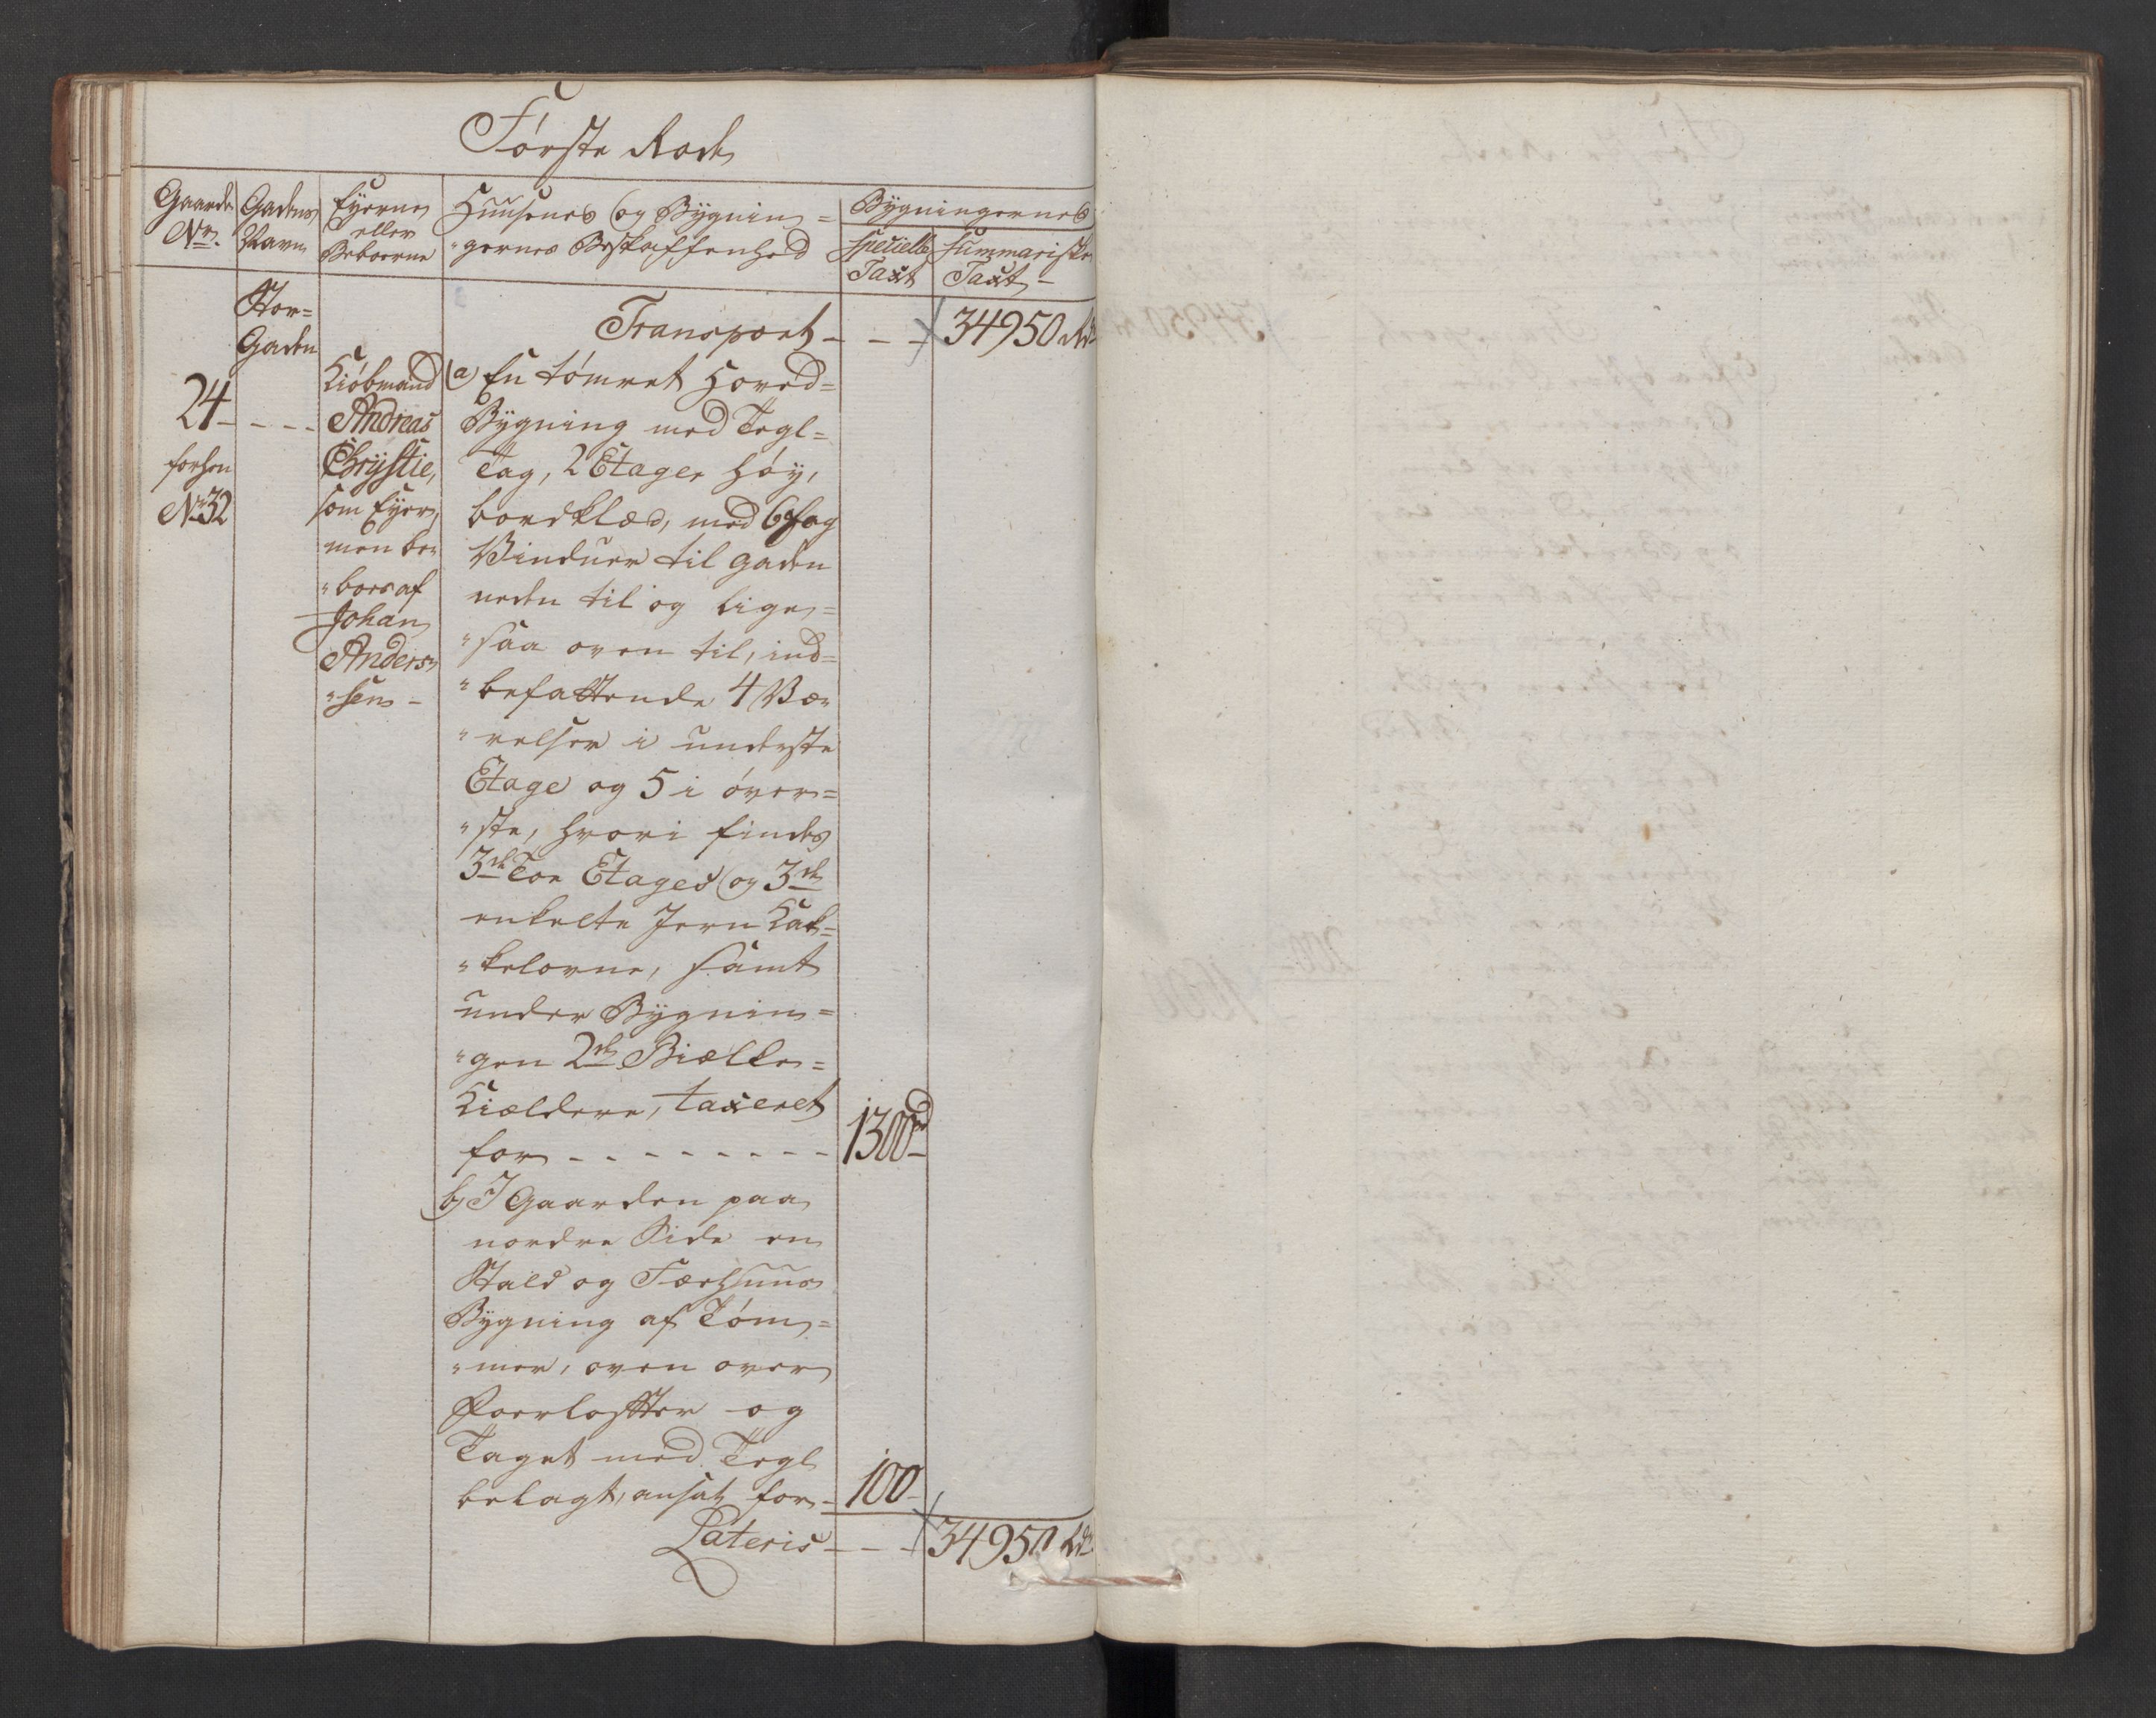 Første Rode
Gaarde
No.
Gadens
Navn
Eyerne
eller
Beboerne
Huusenes og Bygnin=
"gernes Beskaffenhed
Bygningernes
Specielle
Taxt
Summariske
Taxt
Stor=
Gaden
Transport - - - 34950 Rd
24 - - - -
forhen
No 32
Kiöbmand
Andreas
Chrystie,
som Eyer,
men be=
"boes af
Johan
Anders
"sen -
a) En tømret Hoved=
Bygning med Tegl=
Tag, 2 Etager høy,
bordklæd, med 6 Fag
Vinduer til Gaden
neden til og lige=
"saa oven til, ind=
"befattende 4 Væ=
"relser i underste
Etage og 5 i øver=
"ste, hvori findes
3de Toe Etages og 3de
enkelte Jern Kak=
"kelovne, samt
under Bygnin=
"gen 2de Biælke=
Kieldere, taxeret
for - - - - - - - - 1300rd
b) I Gaarden paa
nordre Side en
Stald og Fæehuus
Bygning af Tøm=
"mer, oven over
Foerlofter og
Taget med Tegl
belagt, ansat for - 100 -
Lateris - - - 34950 Rd